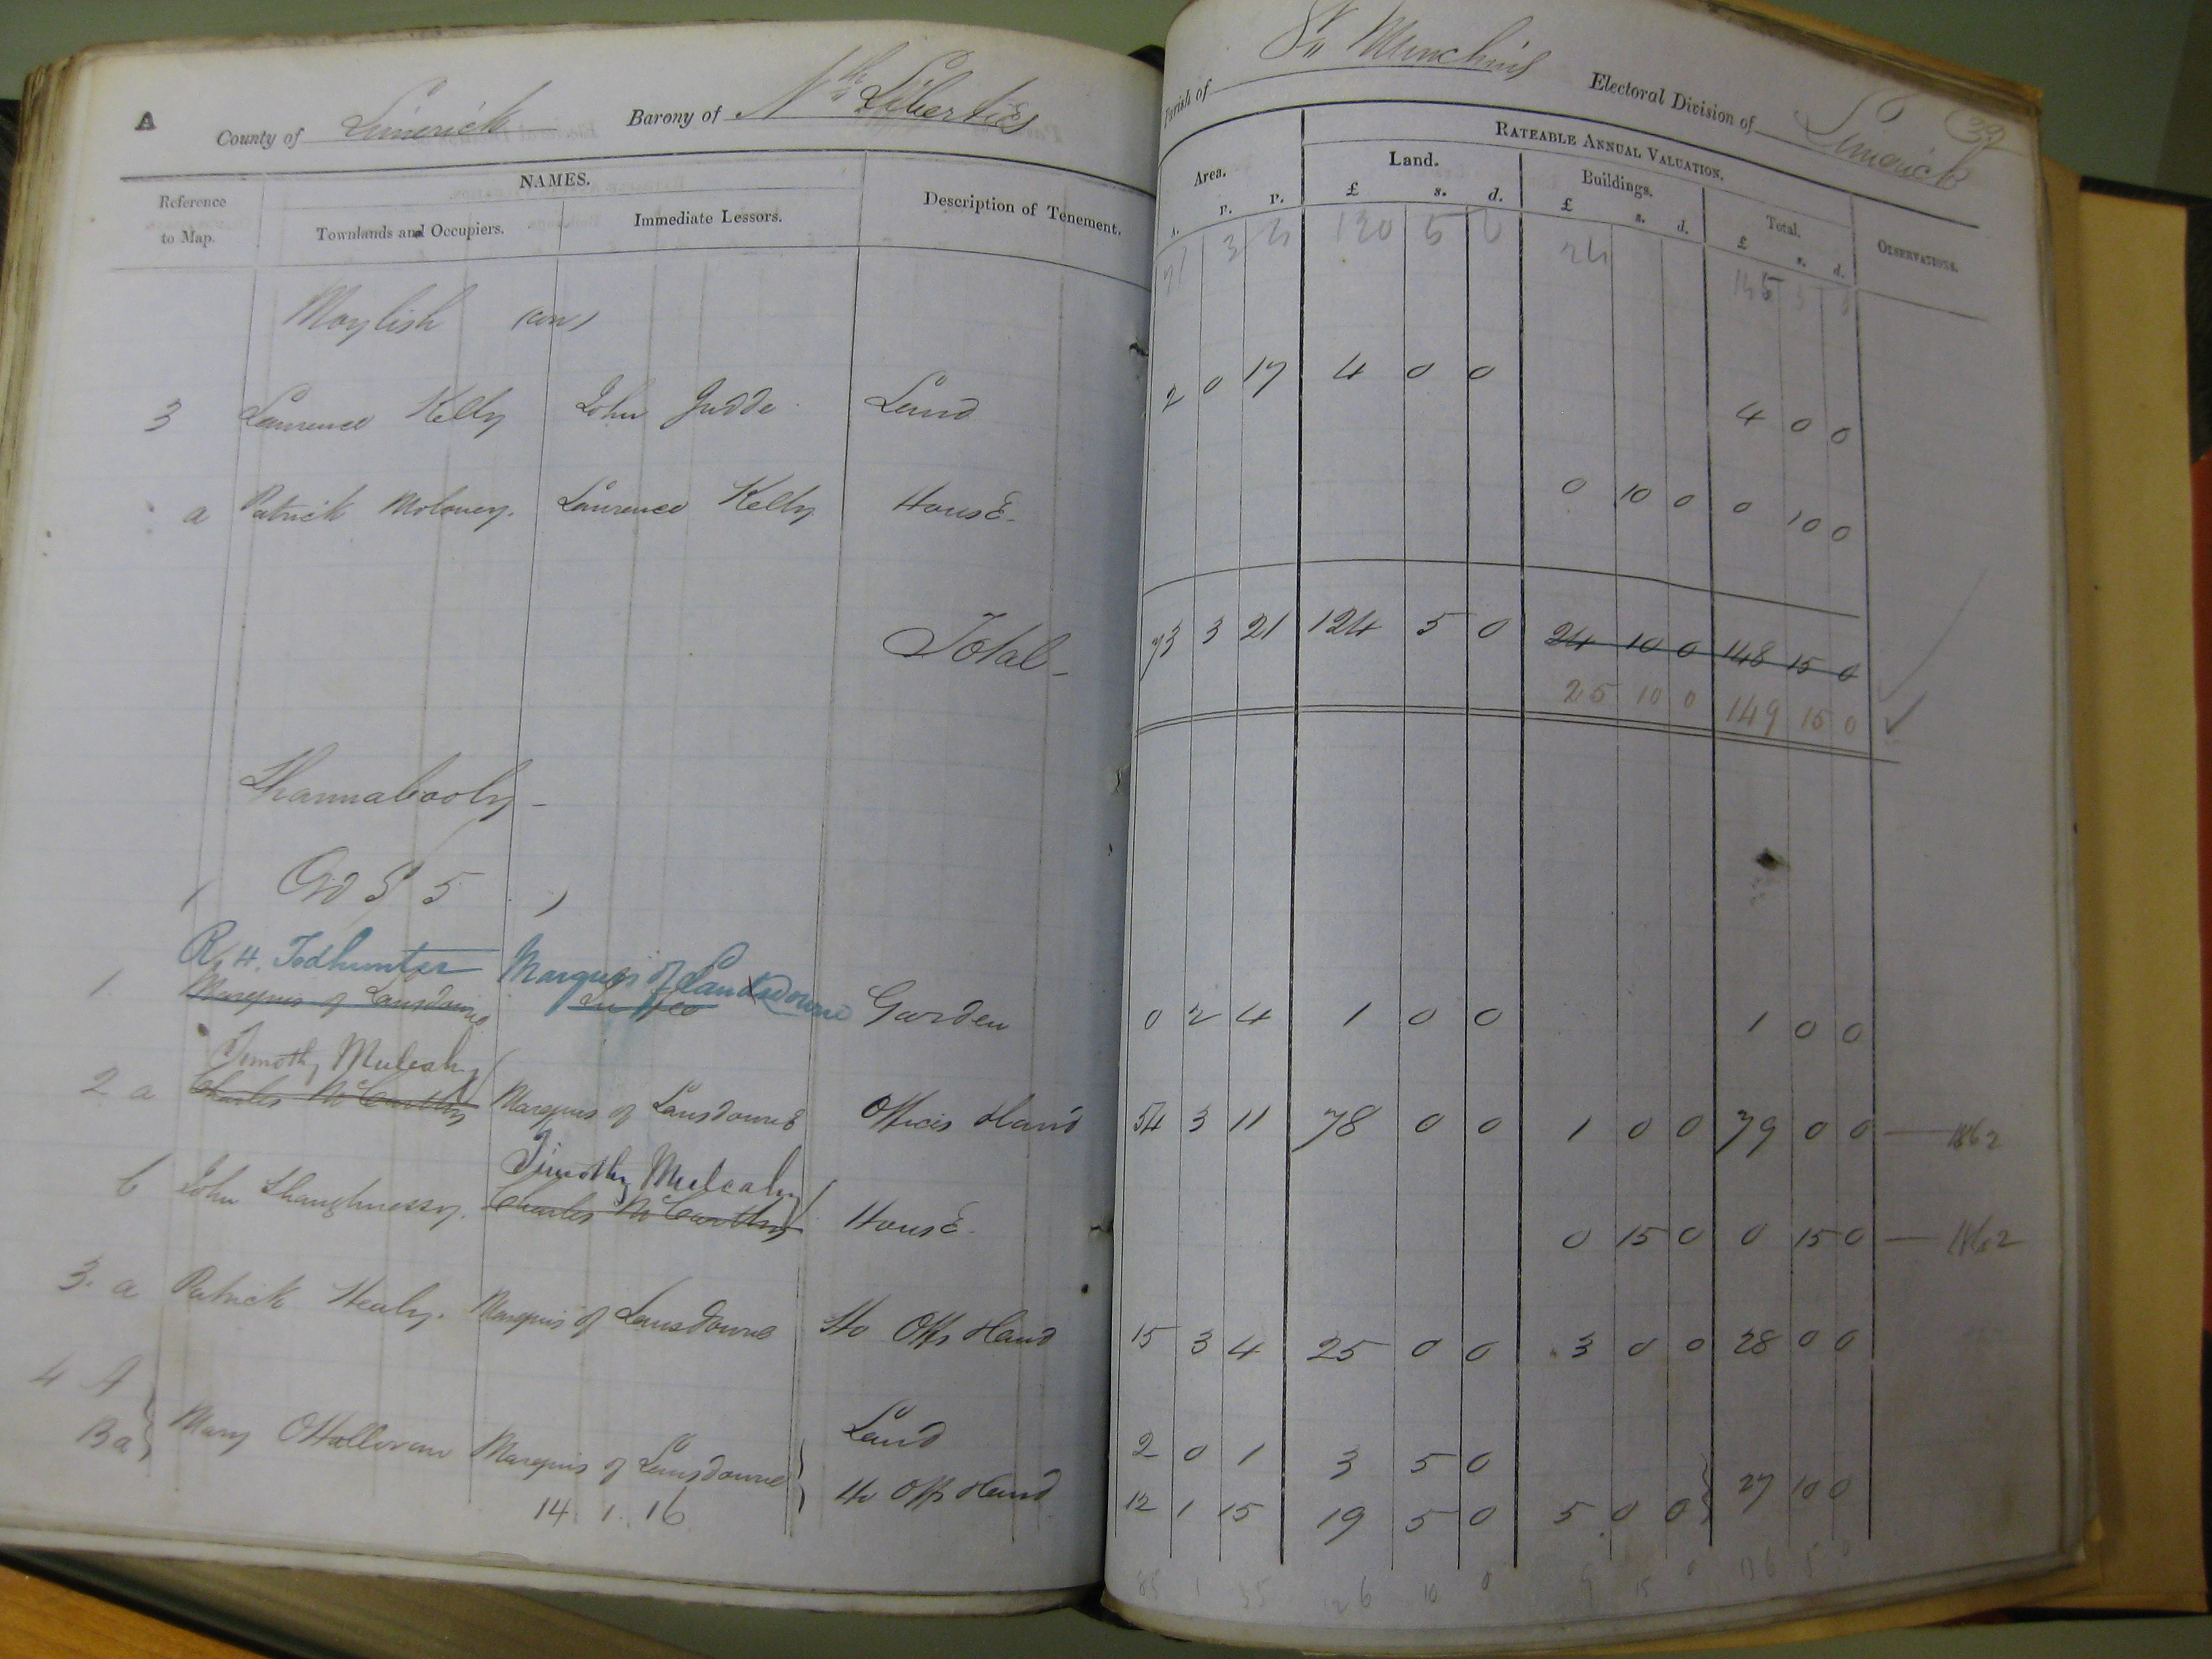 A County of Limerick Barony of Nth Liberties
Parish of St Munchins Electoral Division of Limerick 39
Reference to Map. NAMES. Description of Tenement.
Townlands and Occupiers. Immediate Lessors.
Area. RATEABLE ANNUAL VALUATION. OBSERVATIONS.
Land. Buildings. Total.
A. R. P. £ s. d. £ s. d. £ s. d.
71 3 120 5 0 24 145
Moylish (con)
3 Laurence Kelly John Judde Land 2 0 17 4 0 0 4 0 0
a Patrick Moloney. Laurence Kelly House 0 10 0 0 10 0
Total 73 3 21 124 5 0 24 10 0 148 15 0
25 10 0 149 15 0
Shannabooly
( Ord S 5 )
R. H. Todhunter Marquis of Landsdowne
1 Marquis of Lansdowne In fee Garden 0 2 4 1 0 0 1 0 0
Timothy Mulcahy
2 a Charles McCarthy Marquis of Lansdowne Offices & land 54 3 11 78 0 0 1 0 0 79 0 0 1862
Timothy Mulcahy
b John Shaughnessy. Charles McCarthy House 0 15 0 0 15 0 1862
3. a Patrick Healy. Marquis of Lansdowne Ho Offs & land 15 3 4 25 0 0 3 0 0 28 0 0
4 A Land 2 0 1 3 5 0
Ba } Mary OHalloran Marquis of Lansdowne } Ho Offs & land 12 1 15 19 5 0 5 0 0 } 27 10 0
14. 1. 16
85 1 35 126 10 0 9 15 0 136 5